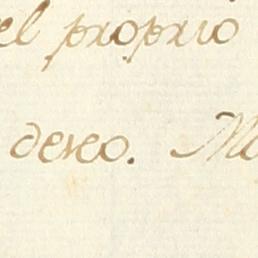 el proprio
dereo. M